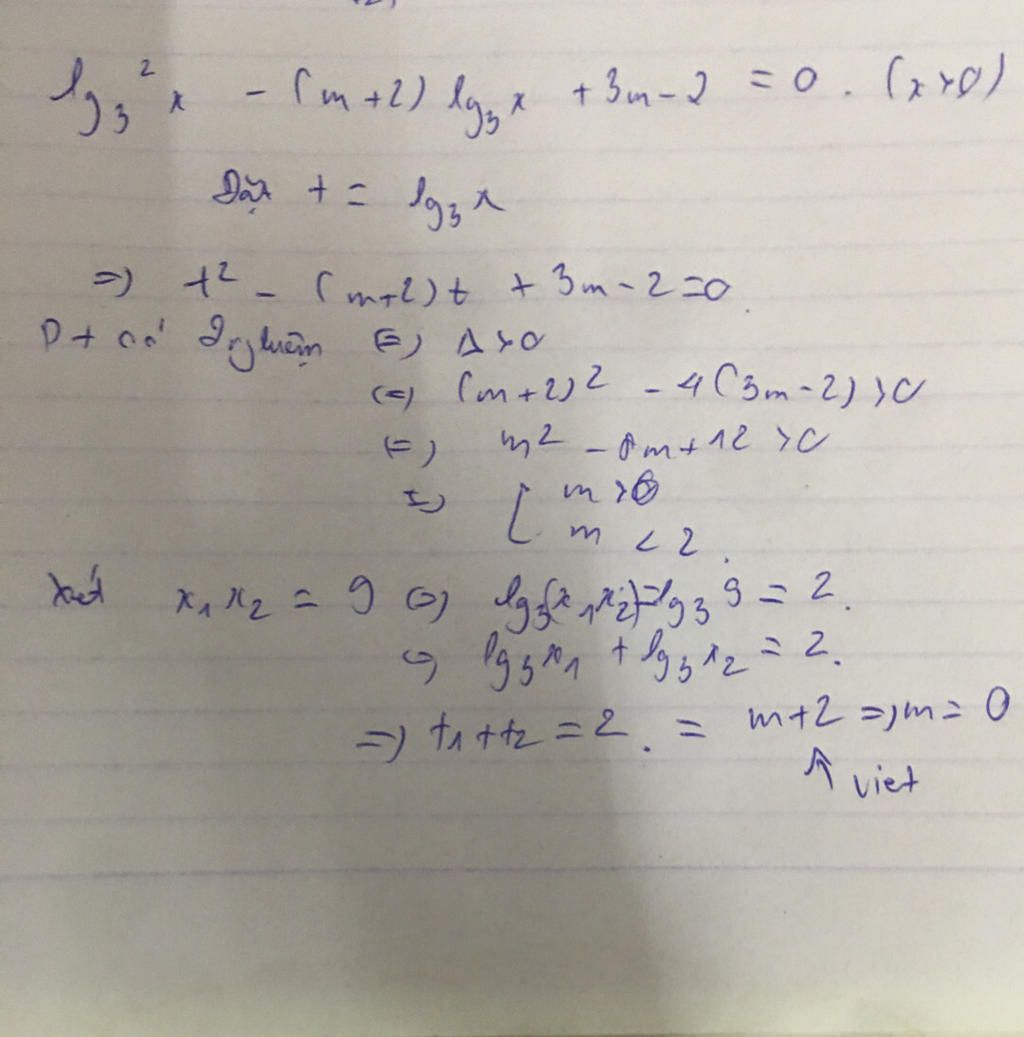 lg₃²x - (m+2) lg₃x + 3m-2 = 0. (x>0)
Đặt t = lg₃x
=> t² - (m+2)t + 3m-2=0.
Pt có 2 nghiệm <=> Δ>0
<=> (m+2)² - 4(3m-2)>0
<=> m² - 8m+12 >0
<=> [ m>6
m < 2.
Xét x₁x₂ = 9 <=> lg₃(x₁x₂)=lg₃9 = 2.
<=> lg₃x₁ + lg₃x₂ = 2.
=> t₁+t₂ = 2. = m+2 => m = 0
↑ viet